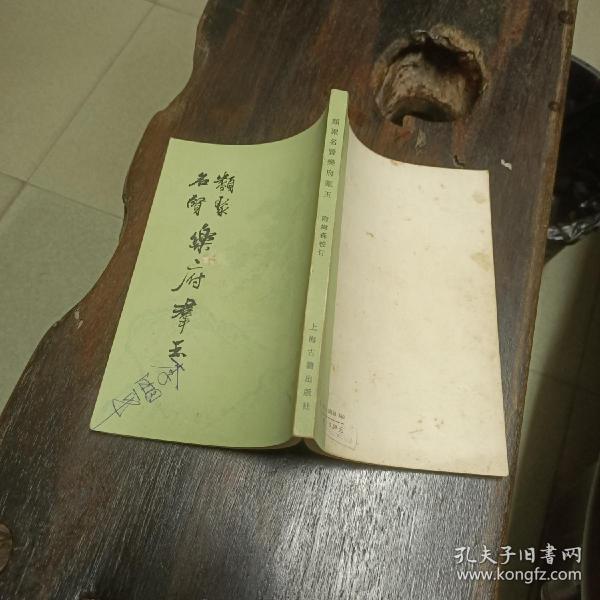 類聚
名賢
樂府羣玉
類聚名賢樂府羣玉
隋樹森校訂
上海古籍出版社
孔夫子旧书网
www.kongfz.com